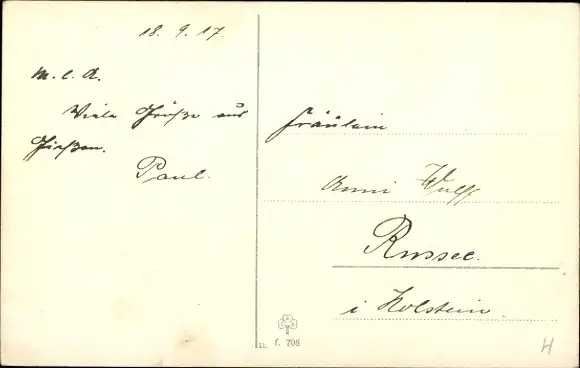 18. 9. 17.
M. l. A.
Viele Grüße aus
Gießen.
Paul.
Fräulein
Anni Wulff
Russee.
i Holstein.
f. 708
H